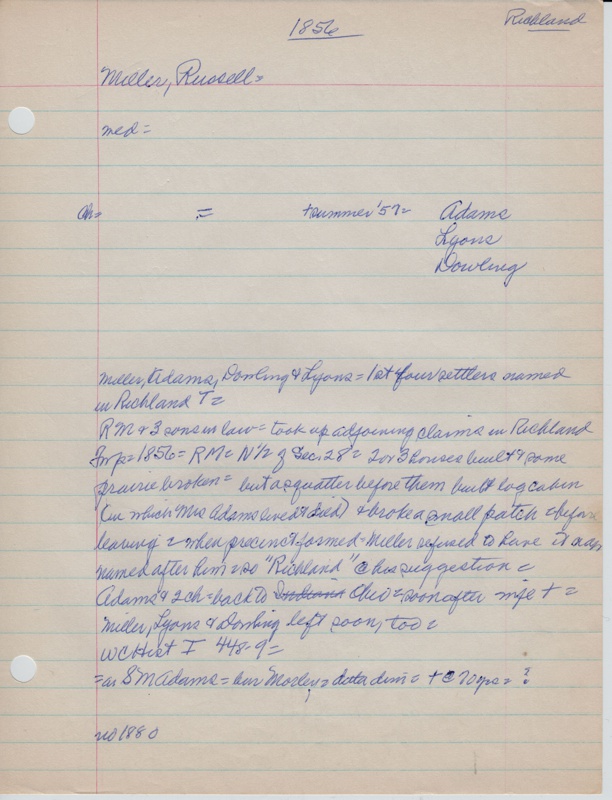 1856
Richland
Miller, Russell =
med =
ch =   =   + summer '57 =   Adams
Lyons
Dowling
Miller, Adams, Dowling & Lyons = 1st four settlers named
in Richland T =
RM & 3 sons in law = took up adjoining claims in Richland
Twp = 1856 = RM = N 1/2 of Sec. 28 = 2 or 3 houses built & some
prairie broken = but a squatter before them built log cabin
(in which Mrs Adams lived & died) & broke a small patch before
leaving = when precinct formed = Miller refused to have it
named after him = so "Richland" @ his suggestion =
Adams & 2 ch = back to Indiana Ohio = soon after wife + =
Miller, Lyons & Dowling left soon, too =
WC Hist I 448-9 =
= S M Adams = = + @ 70 yrs = ?
no 1880